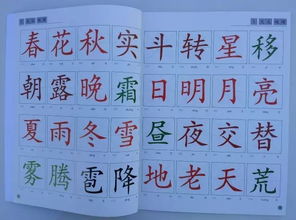 春花秋实
斗转星移
朝露晚霜
日明月亮
夏雨冬雪
昼夜交替
雾腾雹降
地老天荒